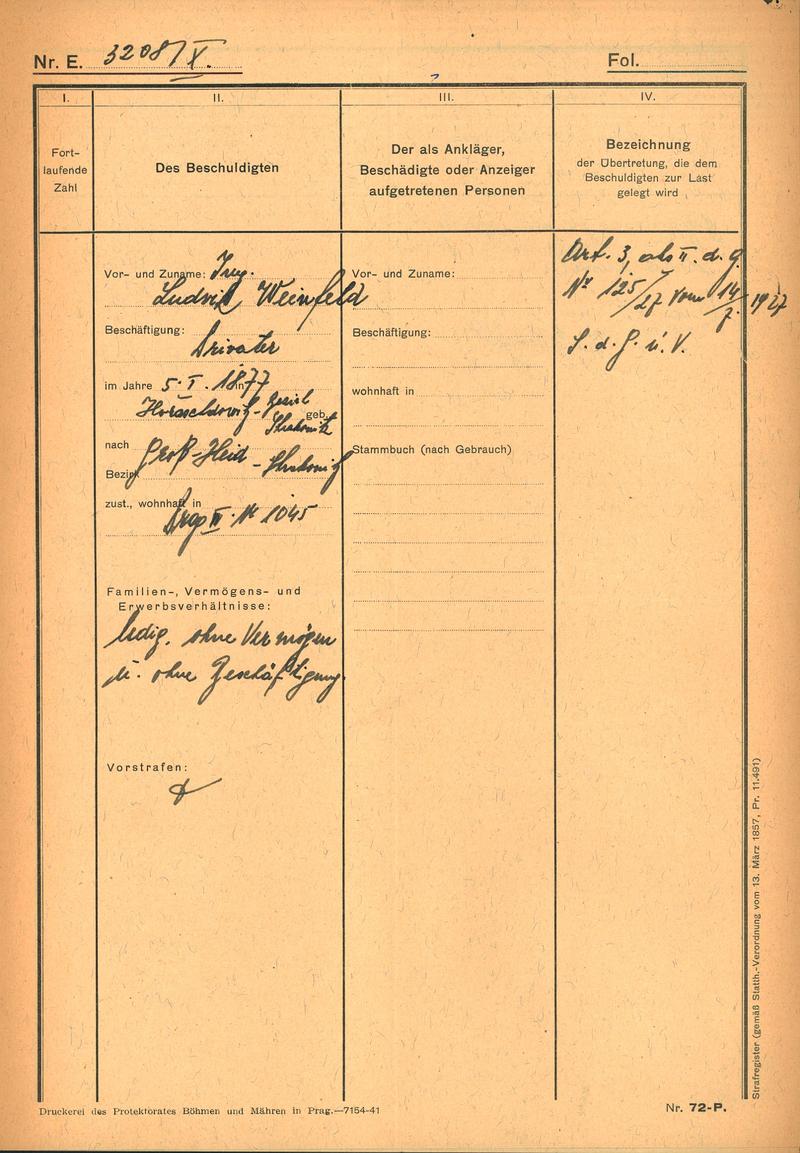 Nr. E. 3208/X.
Fol.
I.
II.
III.
IV.
Fort-
laufende
Zahl
Des Beschuldigten
Der als Ankläger,
Beschädigte oder Anzeiger
aufgetretenen Personen
Bezeichnung
der Übertretung, die dem
Beschuldigten zur Last
gelegt wird
Vor- und Zuname: Ing.
Ludvik Weinfeld
Beschäftigung:
Privater
im Jahre 5. I. 1877 in
Horaschdowitz - Bezirk
geb.
Strakonitz
nach Groß-Heid - Strakonitz
Bezirk
zust., wohnhaft in
Prag II. Nr 1045
Familien-, Vermögens- und
Erwerbsverhältnisse:
ledig. ohne Vermögen
u. ohne Beschäftigung
Vorstrafen:
Vor- und Zuname:
Beschäftigung:
wohnhaft in
Stammbuch (nach Gebrauch)
Art. 3, als II. d. G.
Nr 125/27 vom 14/7. 1927
S. d. G. u. V.
Strafregister (gemäß Statth.-Verordnung vom 13. März 1857, Pr. 11.491)
Druckerei des Protektorates Böhmen und Mähren in Prag.—7154-41
Nr. 72-P.